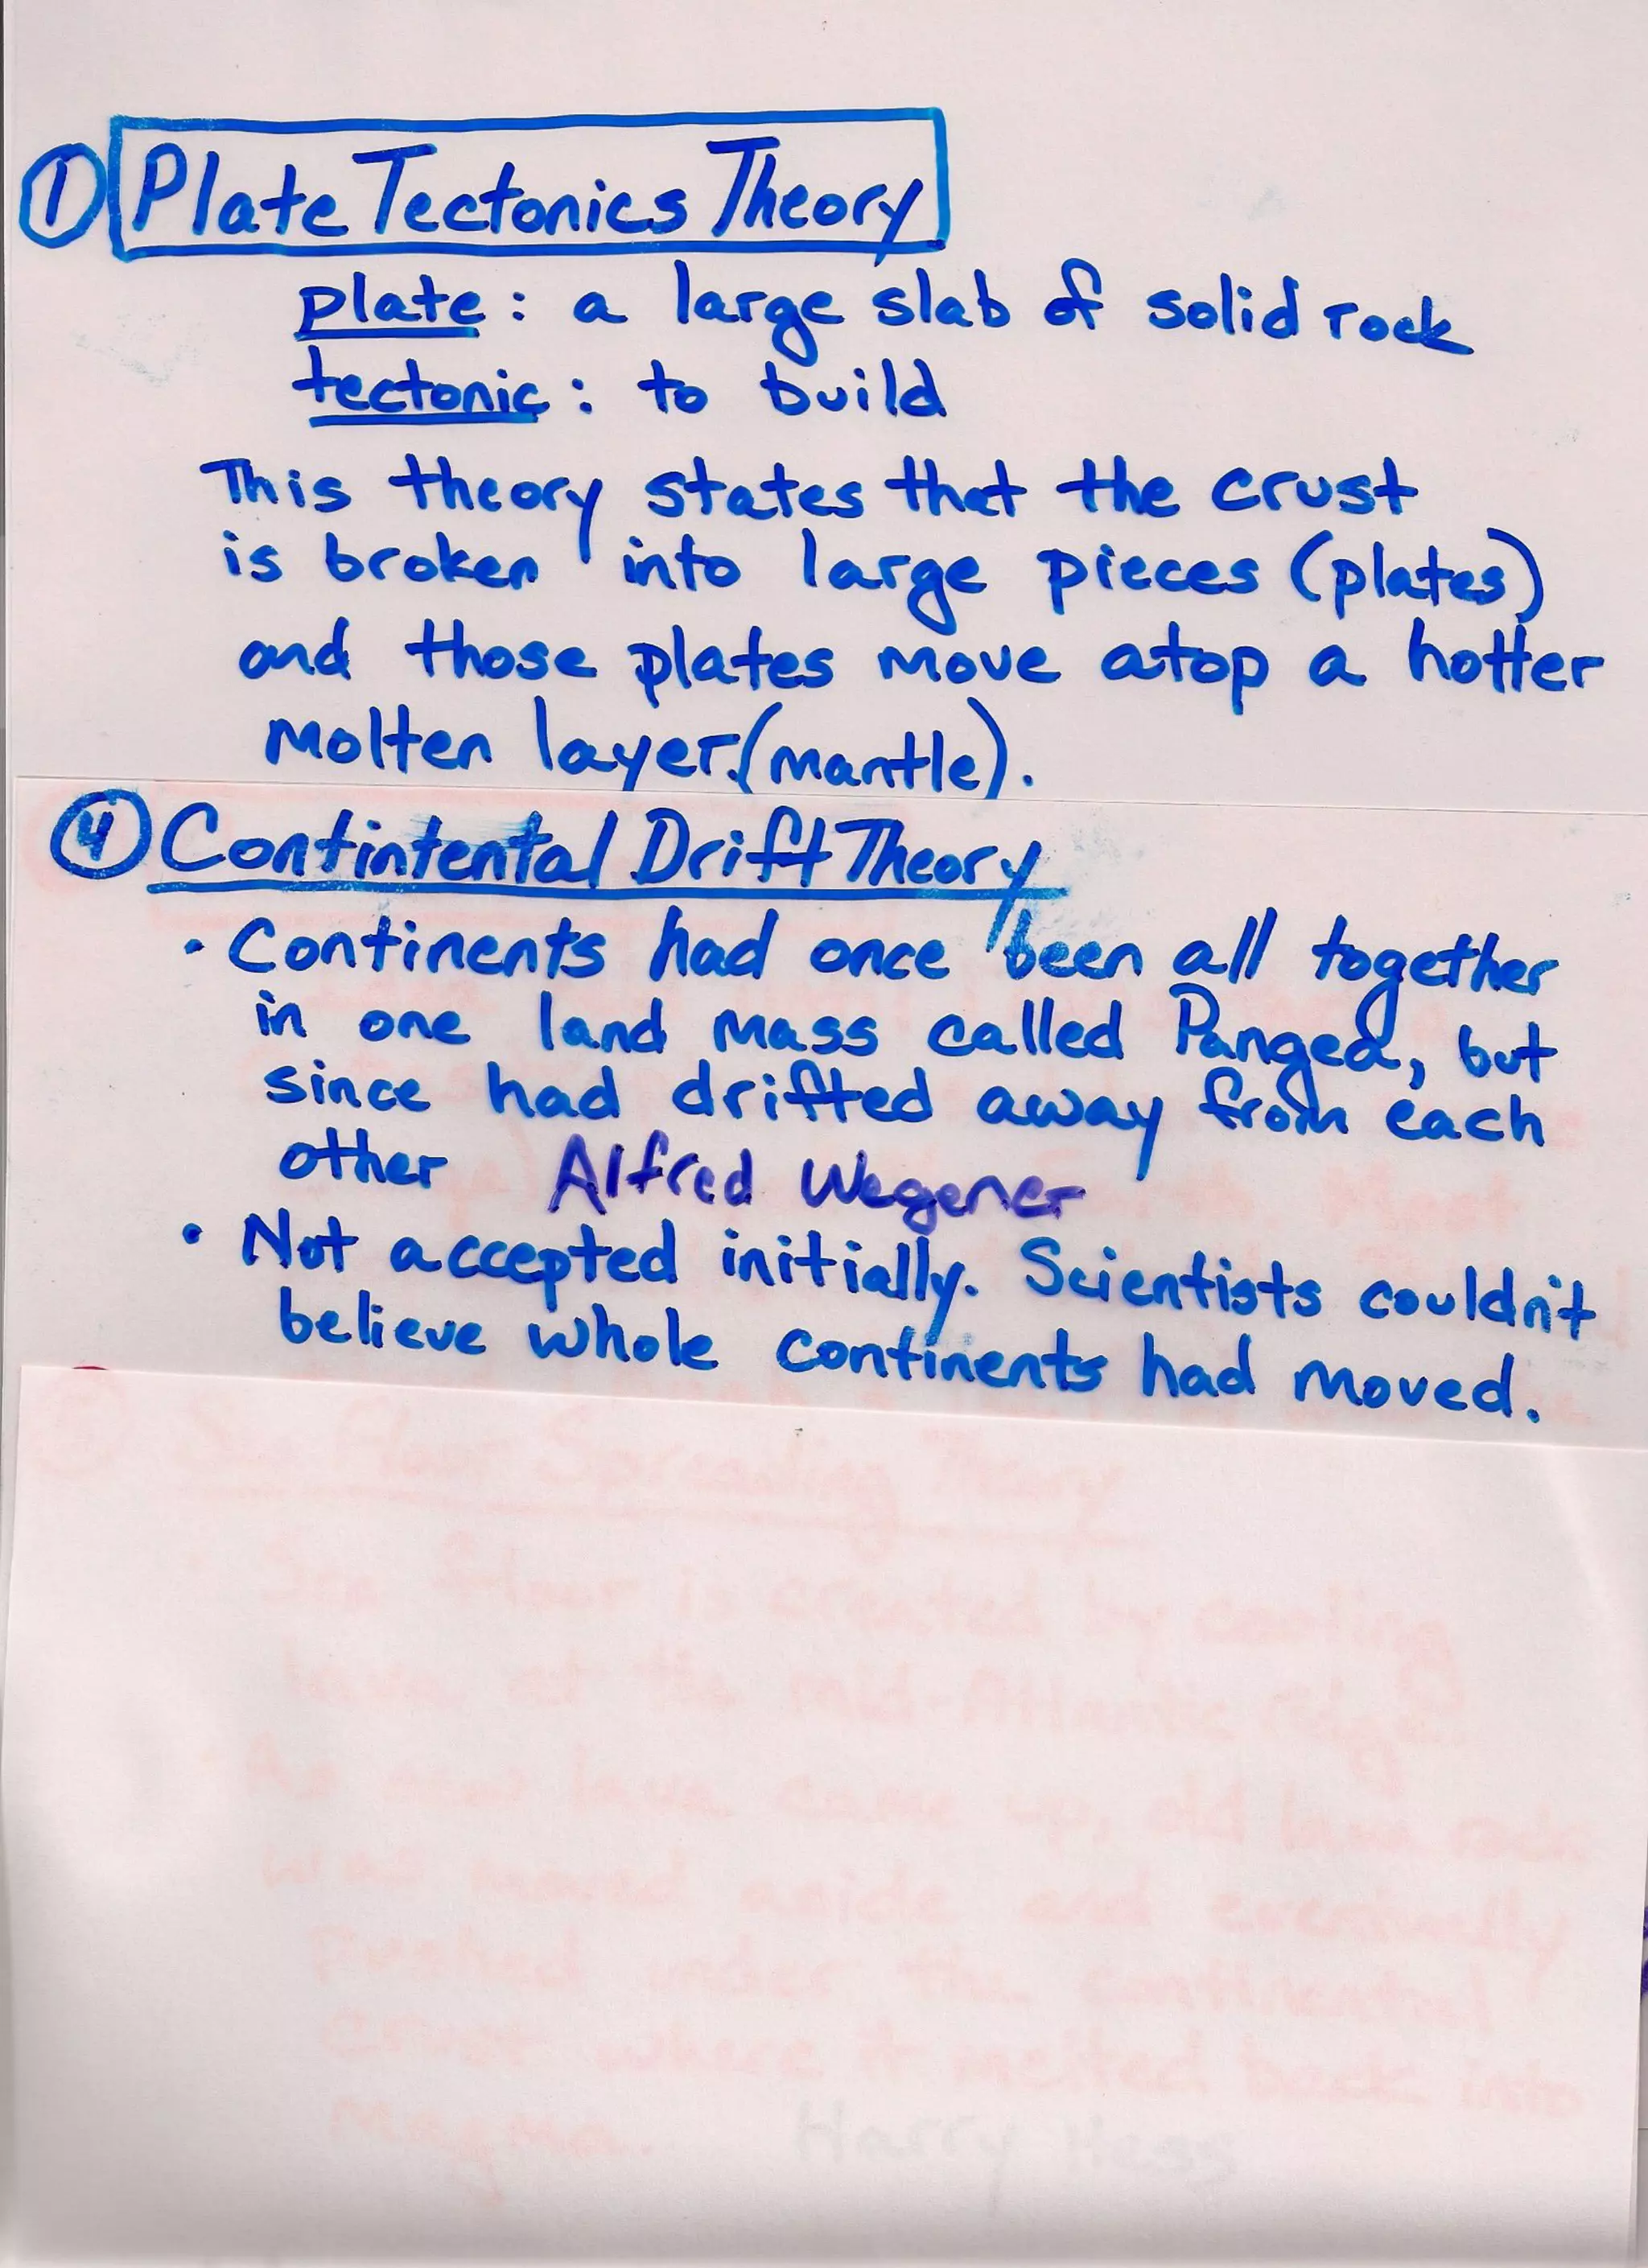 ① Plate Tectonics Theory
plate: a large slab of solid rock
tectonic: to build
This theory states that the crust
is broken into large pieces (plates)
and those plates move atop a hotter
molten layer.(mantle).
④ Contintental Drift Theory
• Continents had once been all together
in one land mass called Pangea, but
since had drifted away from each
other Alfred Wegener
• Not accepted initially. Scientists couldn't
believe whole continents had moved.
Sea Floor Spreading Theory
Sea floor is created by cooling
lava at the Mid-Atlantic Ridge.
As new lava came up, old lava rock
was moved aside and eventually
pushed under the continental
crust where it melted back into
magma. Harry Hess